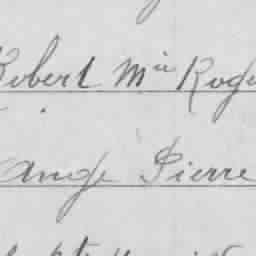 Robert Mie Roge
Ange Pierre